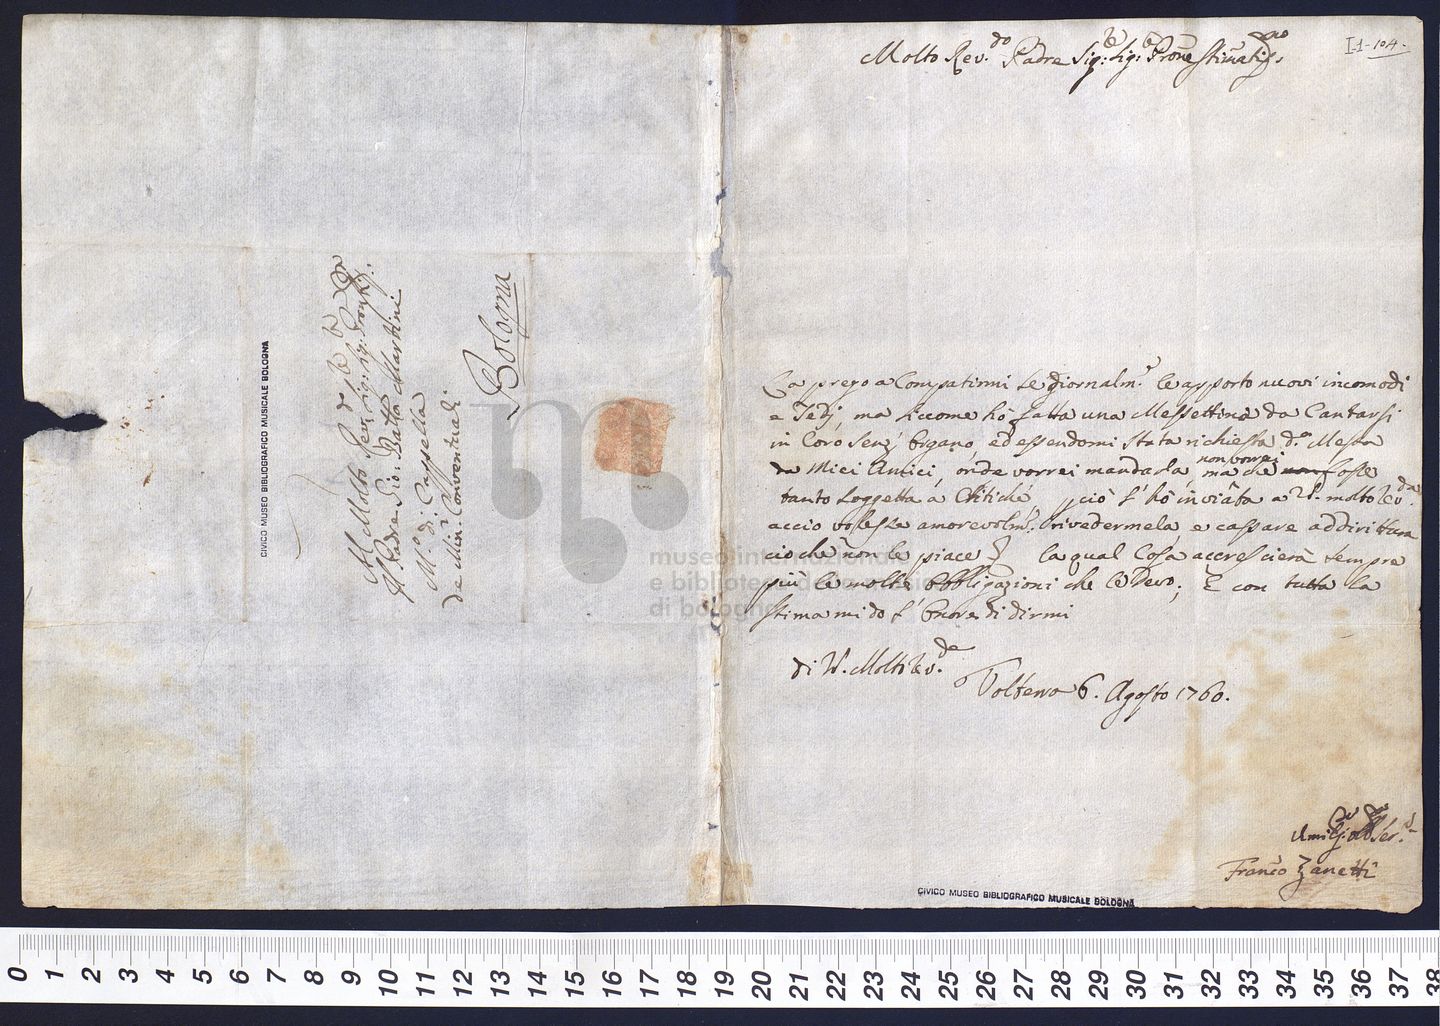 Al Molto Rev.do Pre Sig: Sig: Pron Col.mo
Il Padre Gio: Batta Martini
M.ro di Cappella
de Min: Conventuali
Bologna
CIVICO MUSEO BIBLIOGRAFICO MUSICALE BOLOGNA
I-1-104-
Molto Rev.do Padre Sig:re Sig:re Prone Stimatis.mo
La prego a Compatirmi se giornalm.e le apporto nuovi incomodi
e Tedj, ma siccome hò fatta una Messettina da Cantarsi
in Coro senz' Organo, ed essendomi stata richiesta d.a Messa
da Miei Amici, onde vorrei mandarla, ma che non vorrei fosse
tanto soggetta à Critiche perciò l' hò inviata a V. molto Rev.da
acciò volesse amorevolm.e rivedermela e cassare addirittura
ciò che non le piace; la qual Cosa accrescierà sempre
più le molte obbligazioni che le Devo; E con tutta la
stima mi do l' onore di dirmi
di V. Molto Rev.da
Volterra 6. Agosto 1760.
Umilis: Serv.e
Franco Zanetti
CIVICO MUSEO BIBLIOGRAFICO MUSICALE BOLOGNA
museo internazionale
e biblioteca della musica
di bologna
0 1 2 3 4 5 6 7 8 9 10 11 12 13 14 15 16 17 18 19 20 21 22 23 24 25 26 27 28 29 30 31 32 33 34 35 36 37 38